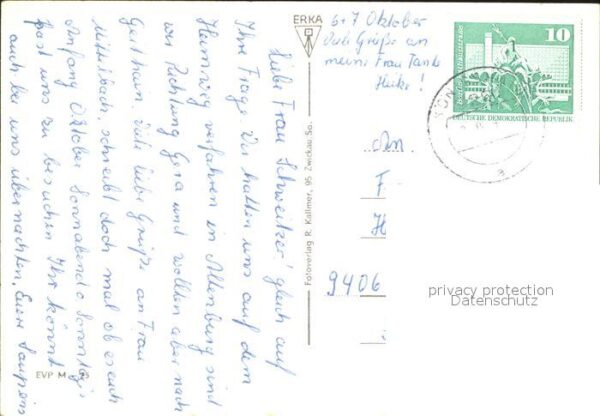 Liebe Frau Schweitzer! gleich auf
Ihre Frage Wir hatten uns auf dem
Heimweg verfahren in Altenburg sind
wir Richtung Gera und wollten aber nach
Geithain. Viele liebe Grüße an Frau
Mittelbach, schreibt doch mal ob es euch
Anfang Oktober Sonnabend o. Sonntag
passt uns zu besuchen Ihr könnt
auch bei uns übernachten, Eure
6+7 Oktober
Viele Grüße an
meine Frau Tante
Heike!
ERKA
Fotoverlag R. Kallmer, 95 Zwickau Sa.
EVP M
10
DEUTSCHE DEMOKRATISCHE REPUBLIK
An
F
H
9406
privacy protection
Datenschutz